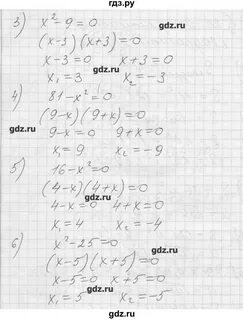 гдз.ру
3) x²-9=0
(x-3)(x+3)=0
x-3=0 x+3=0
x₁=3 x₂=-3
4) 81-x²=0
(9-x)(9+x)=0
9-x=0 9+x=0
x₁=9 x₂=-9
5) 16-x²=0
(4-x)(4+x)=0
4-x=0 4+x=0
x₁=4 x₂=-4
6) x²-25=0
(x-5)(x+5)=0
x-5=0 x+5=0
x₁=5 x₂=-5
гдз.ру